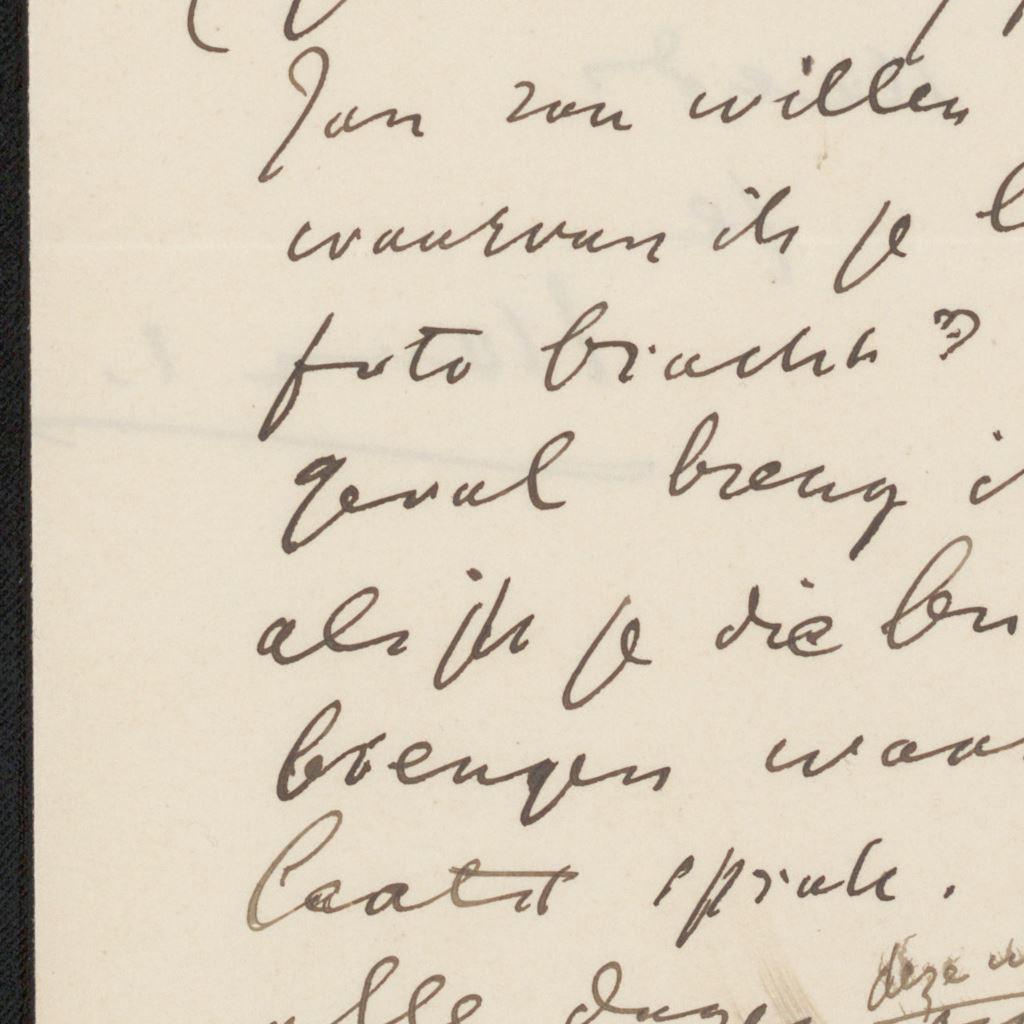 Jan zou willen
waarvan ik je
foto bracht?
geval breng i
als ik je die
brengen waar
laatst sprak.
deze
alle dagen